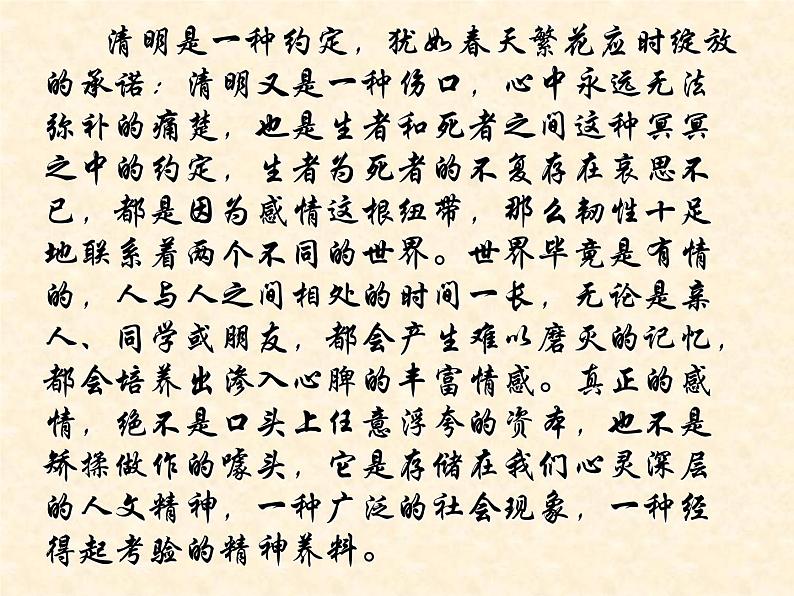 清明是一种约定，犹如春天繁花应时绽放
的承诺；清明又是一种伤口，心中永远无法
弥补的痛楚，也是生者和死者之间这种冥冥
之中的约定，生者为死者的不复存在哀思不
已，都是因为感情这根纽带，那么韧性十足
地联系着两个不同的世界。世界毕竟是有情
的，人与人之间相处的时间一长，无论是亲
人、同学或朋友，都会产生难以磨灭的记忆，
都会培养出渗入心脾的丰富情感。真正的感
情，绝不是口头上任意浮夸的资本，也不是
矫揉做作的噱头，它是存储在我们心灵深层
的人文精神，一种广泛的社会现象，一种经
得起考验的精神养料。